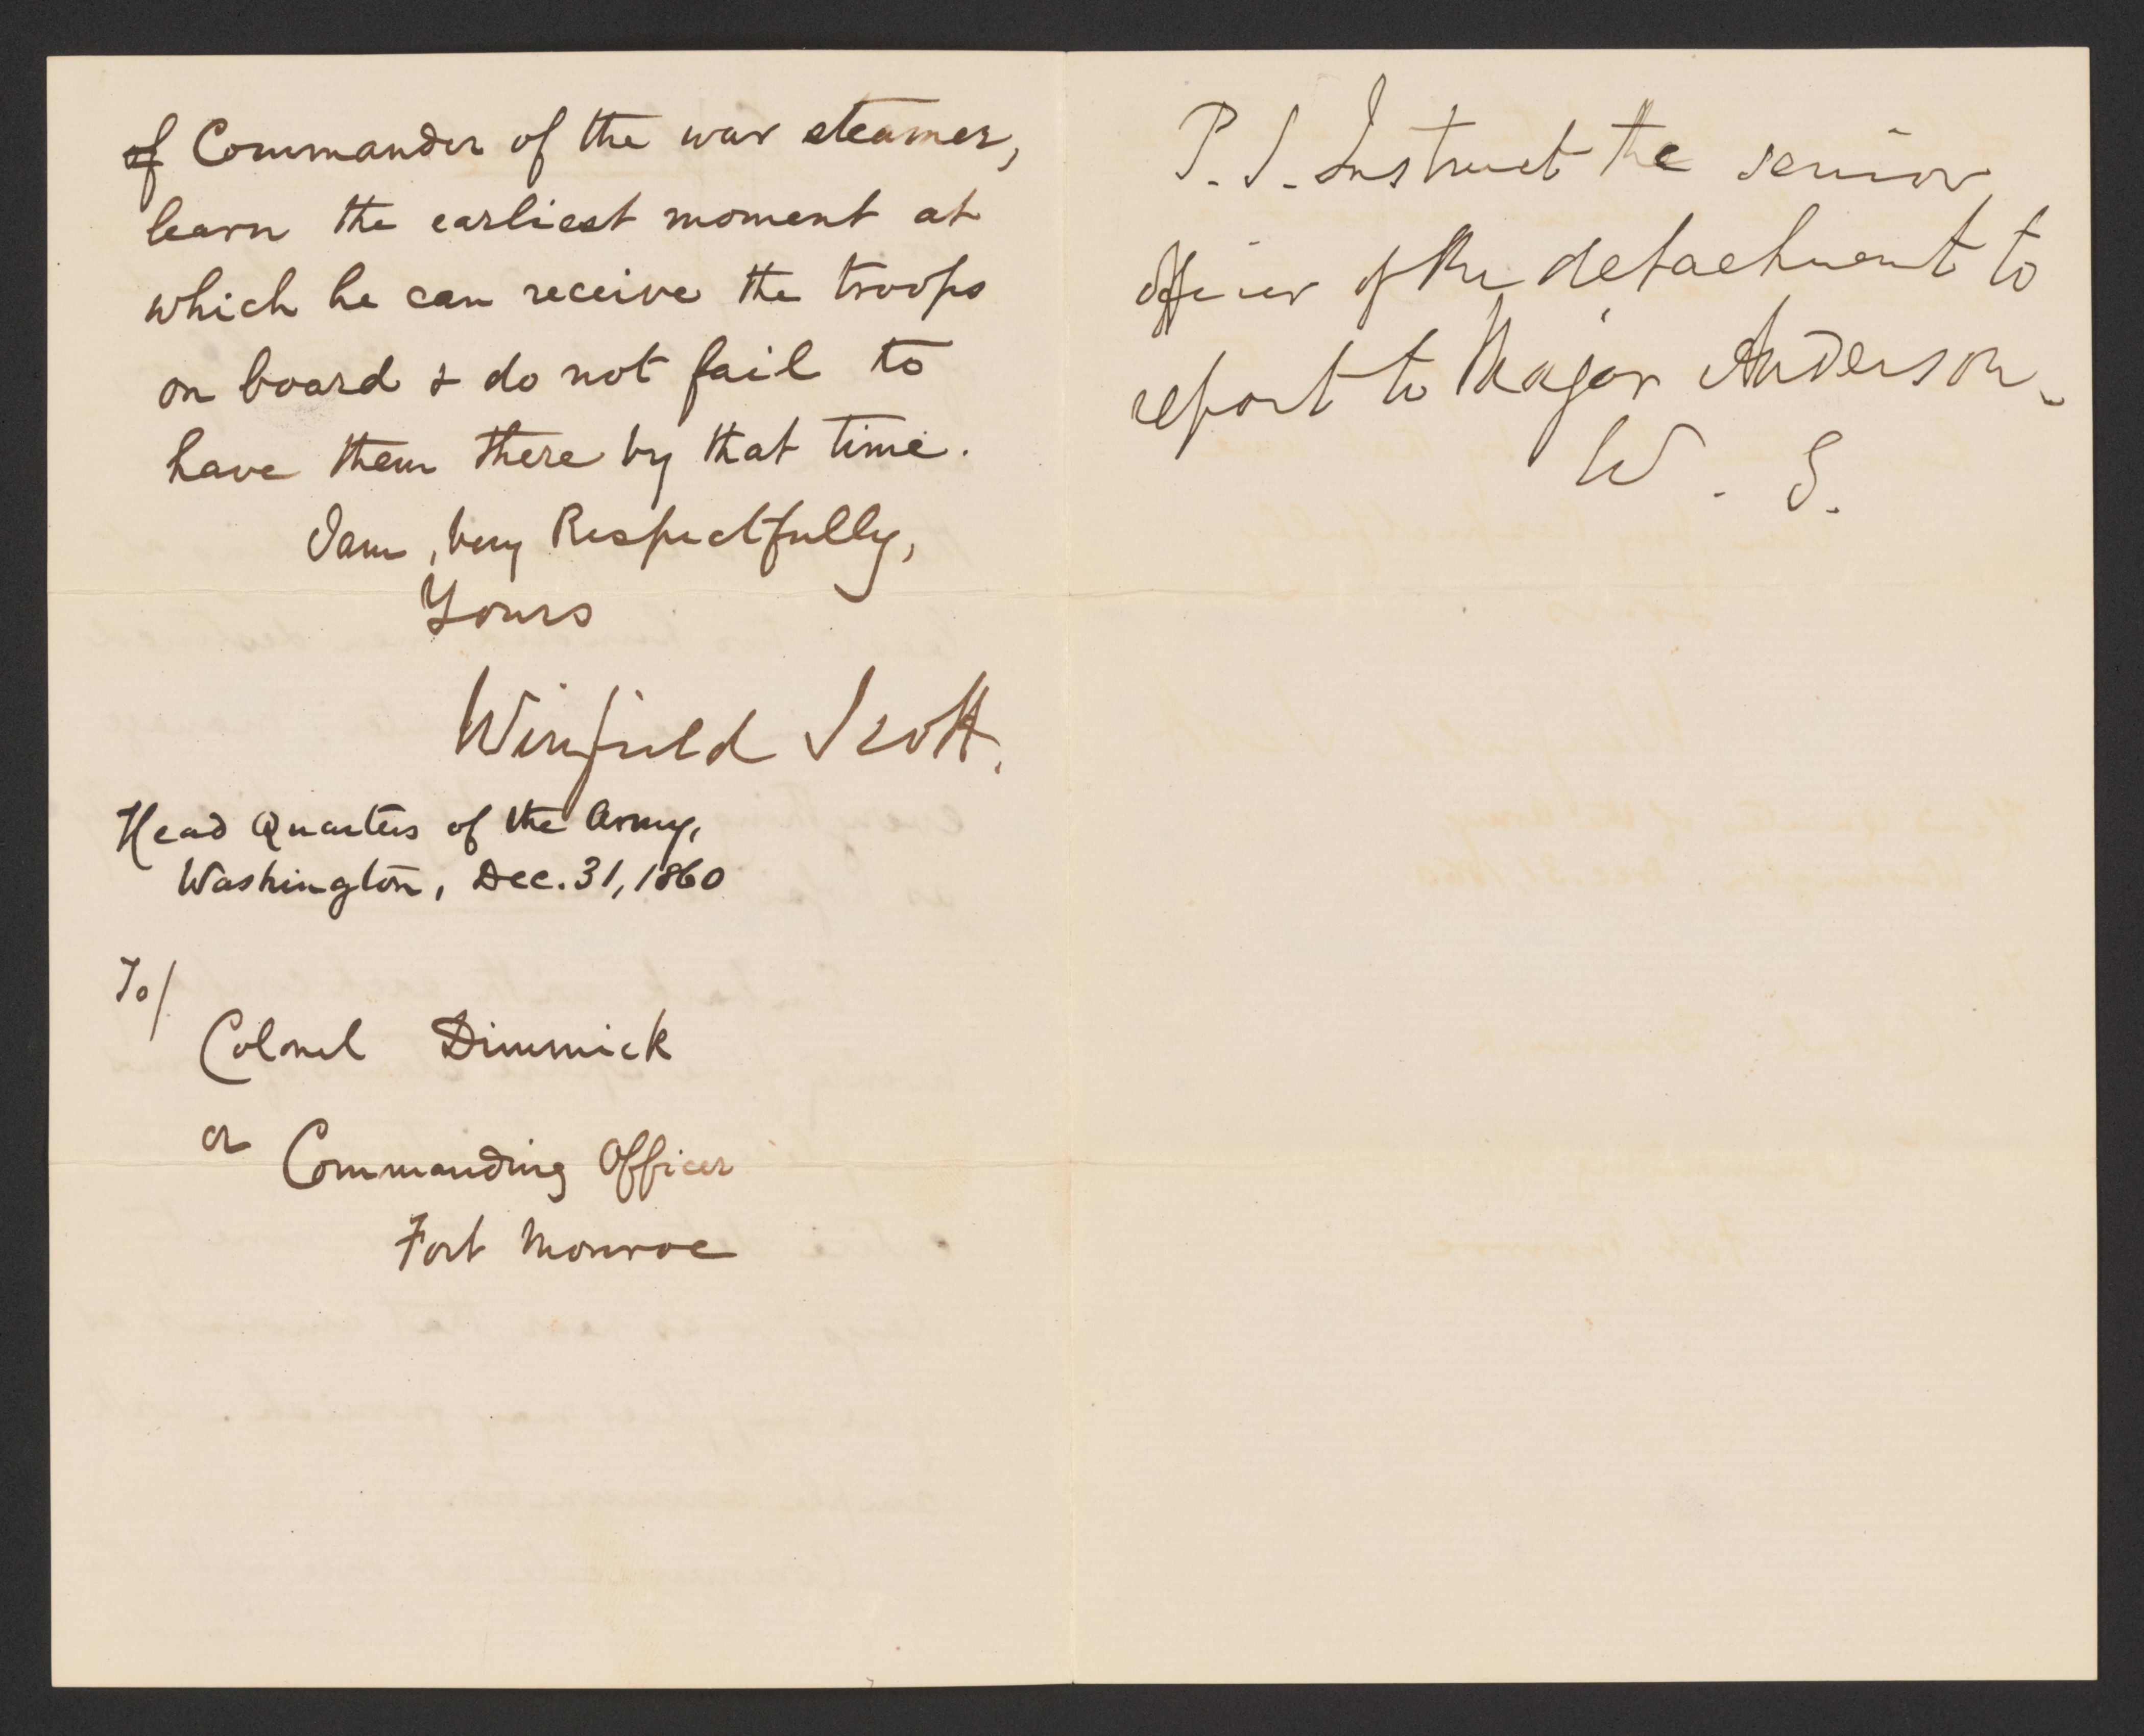 of Commander of the war steamer,
learn the earliest moment at
which he can receive the troops
on board & do not fail to
have them there by that time.
I am, very Respectfully,
Yours
Winfield Scott.
Head Quarters of the Army,
Washington, Dec. 31, 1860
To/
Colonel Dimmick
or
Commanding Officer
Fort Monroe
P.S. Instruct the senior
officer of the detachment to
report to Major Anderson.
W. S.